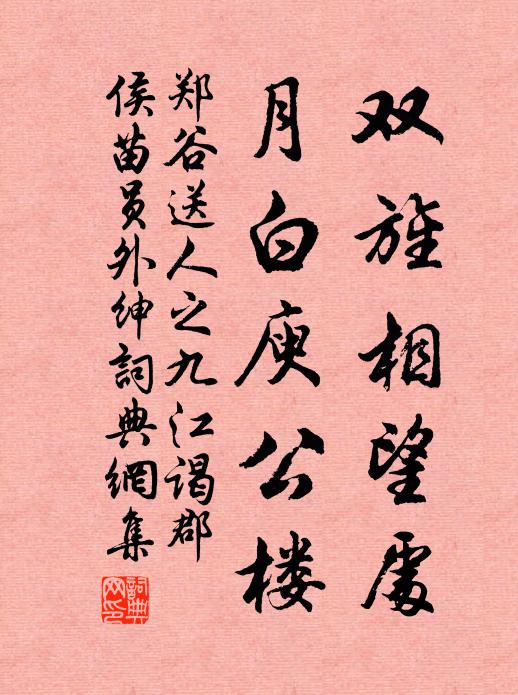 双旌相望處
月白庾公楼
郑谷送人之九江谒郡
侯苗员外绅詞典網集
詞典
网印